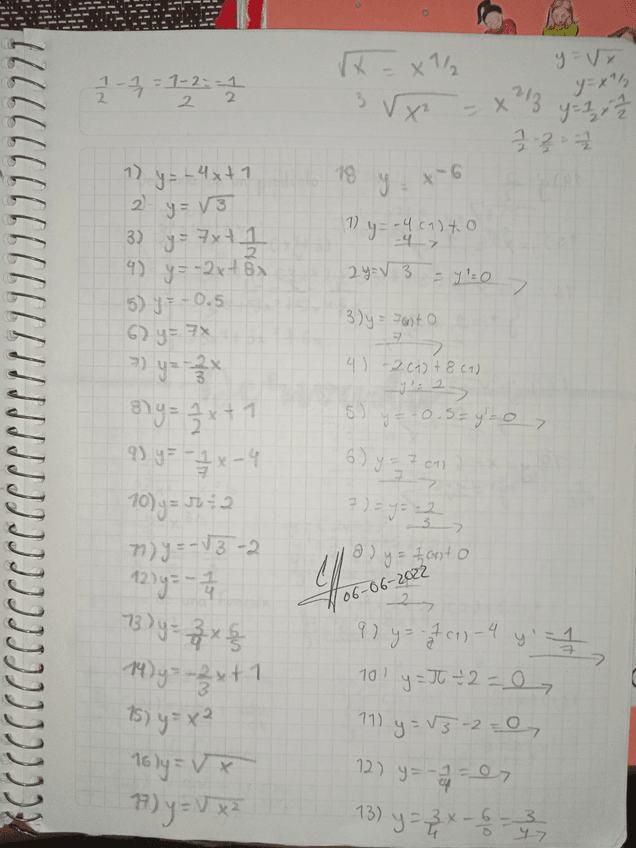 1/2 - 1/1 = 1-2/2 = -1/2
√x = x^1/2
3 √x² = x^2/3
y = √x
y = x^1/2
y = 1/2 x^-1/2
1/2 - 2/2 = -1/2
1) y = -4x + 1
2) y = √3
3) y = 7x + 1/2
4) y = -2x + 8x
5) y = -0.5
6) y = 7x
7) y = -2/3 x
8) y = 1/2 x + 1
9) y = -1/7 x - 4
10) y = π ÷ 2
11) y = -√3 - 2
12) y = -1/4
13.) y = 3/4 x 6/5
14) y = -2/3 x + 1
15) y = x²
16) y = √x
17) y = √x²
18 y = x^-6
1) y = -4(1) + 0
-4
2 y = √3 = y' = 0
3) y = 7(1) + 0
7
4) -2(1) + 8(1)
y' = 2
5) y = -0.5 = y' = 0
6) y = 7(1)
7
7) = y = -2/3
8) y = 1/2(1) + 0
1/2
06-06-2022
9) y = -1/7(1) - 4 y' = 1/7
10) y = π ÷ 2 = 0
11) y = √3 - 2 = 0
12) y = -1/4 = 0
13) y = 3/4 x - 6/5 = 3/4